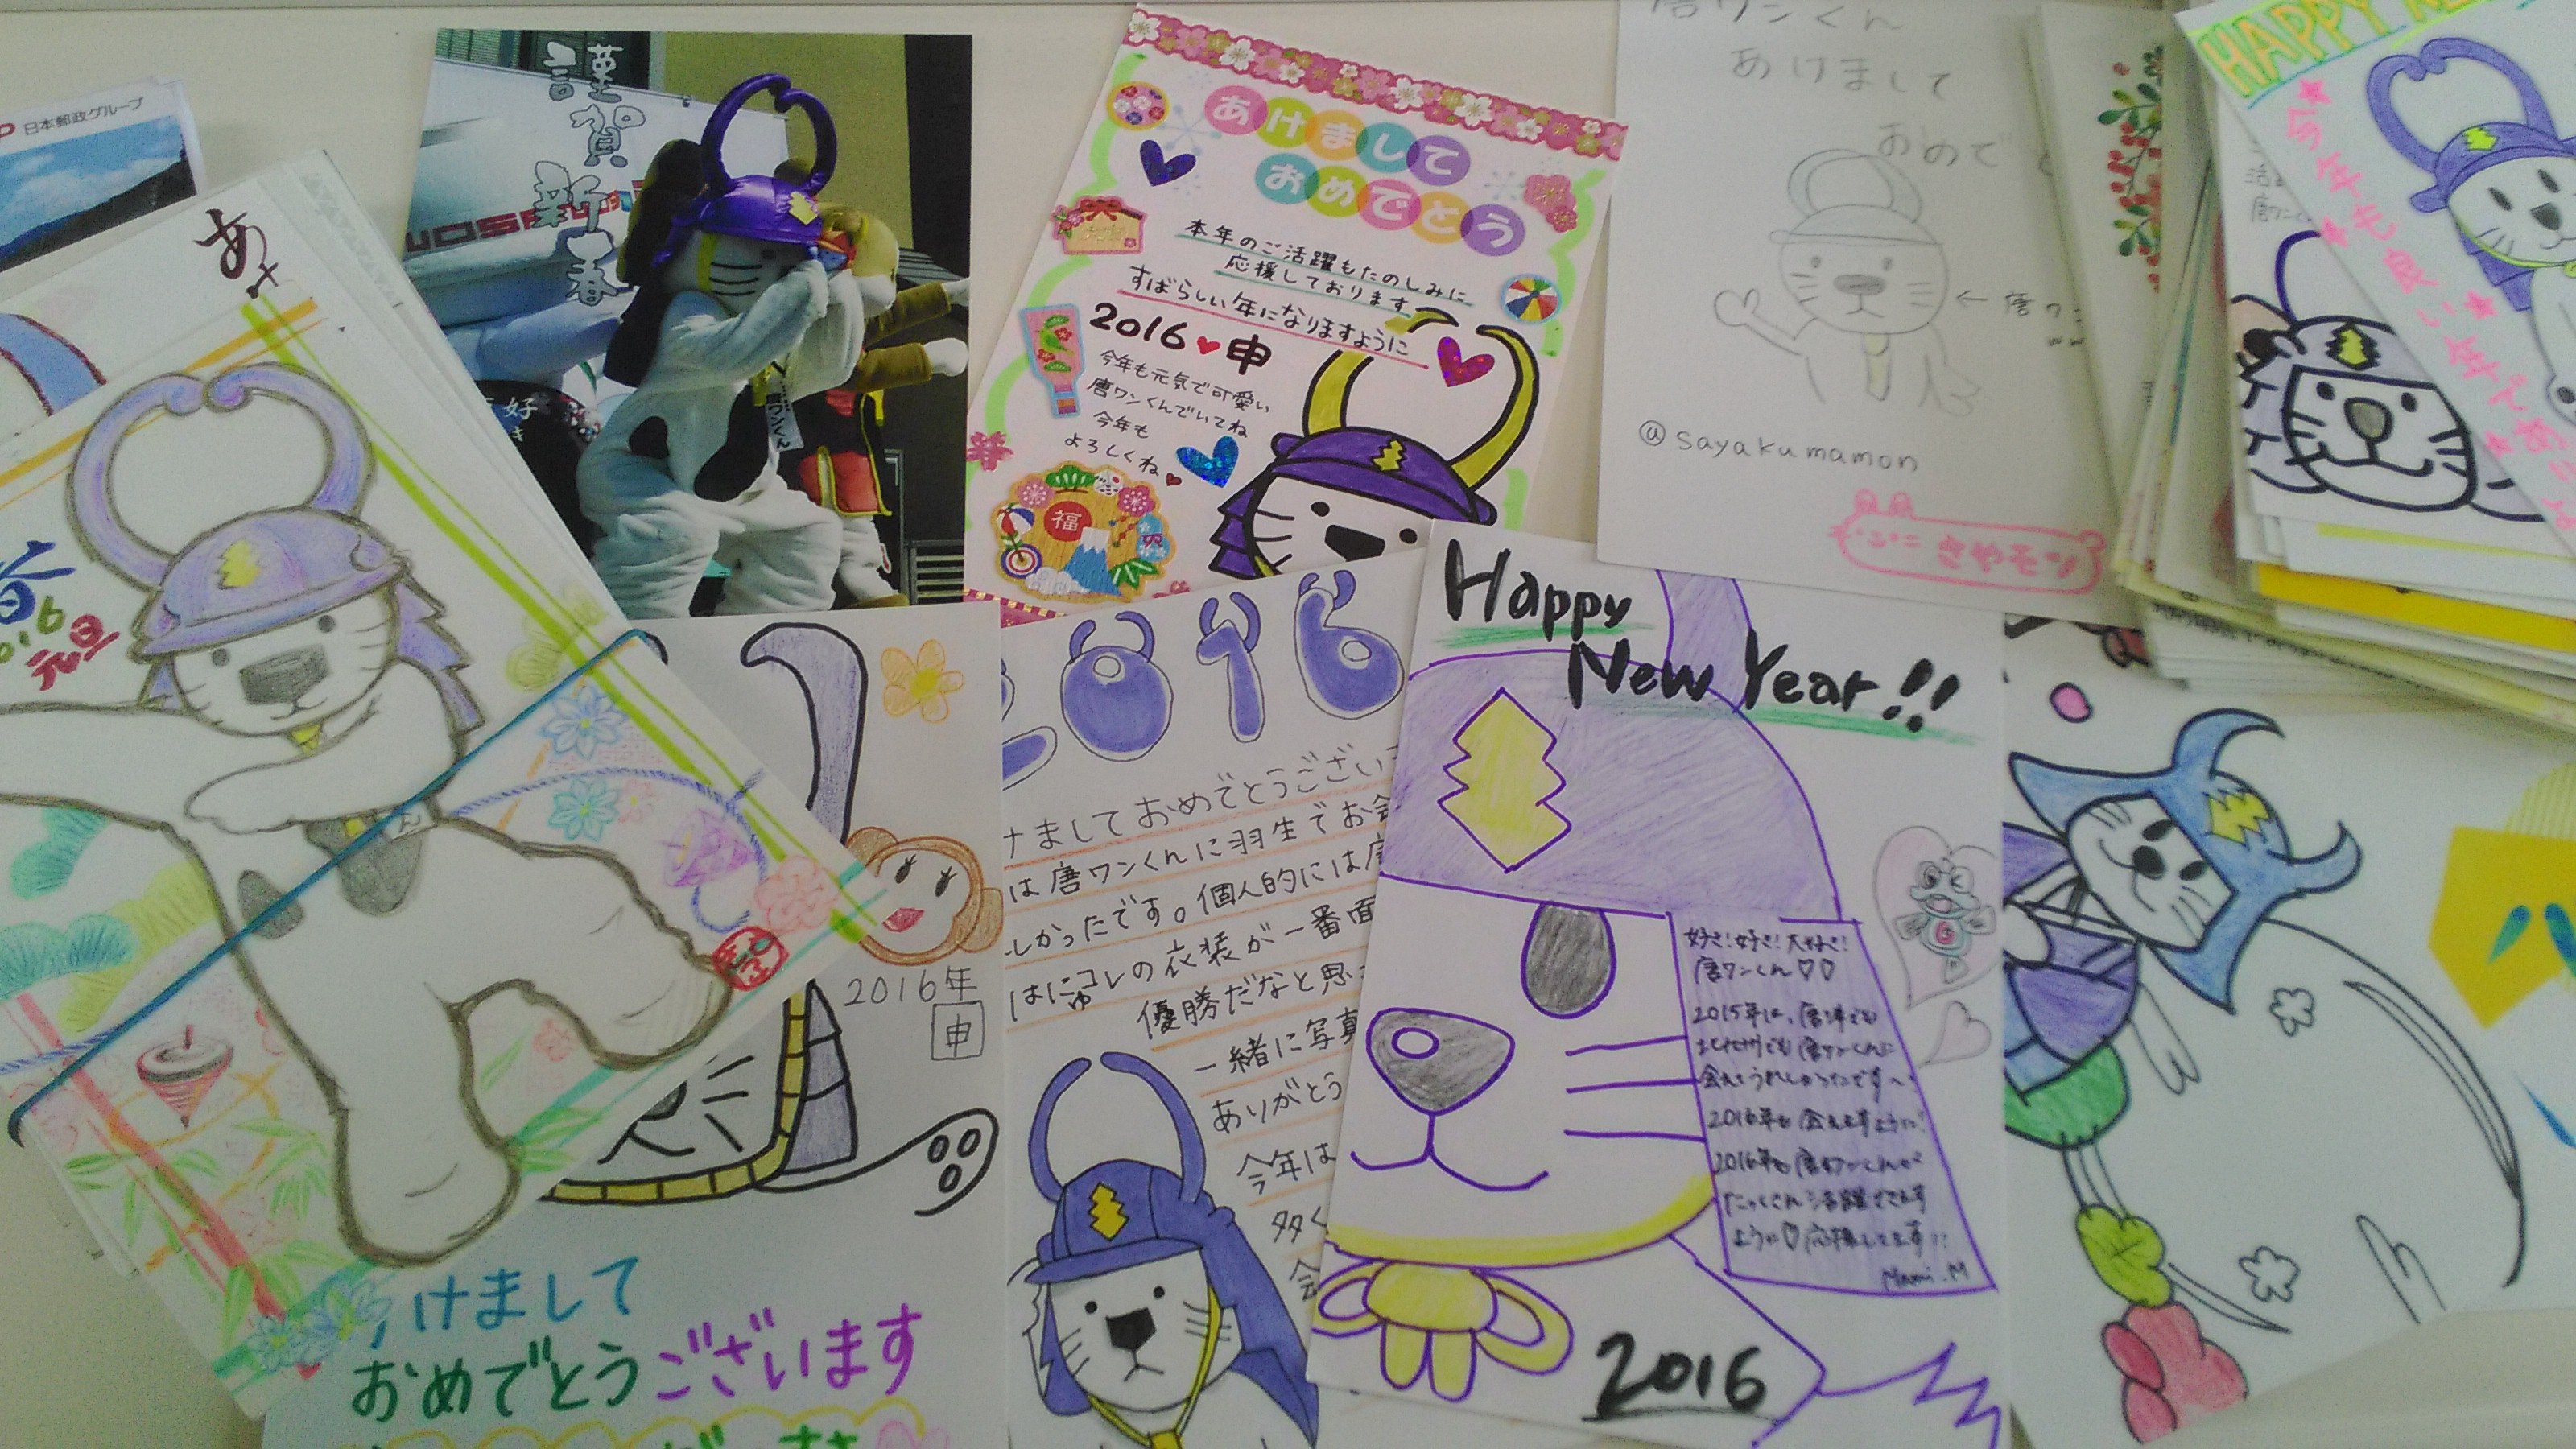 日本郵政グループ
あけ
春
2016
元旦
謹賀新春
唐ワンくん
あけまして
おめでとう
本年のご活躍もたのしみに
応援しております
すばらしい年になりますように
2016♥申
今年も元気で可愛い
唐ワンくんでいてね
今年も
よろしくね
福
唐ワンくん
あけまして
おめでと
←唐ワン
@sayakumamon
さやモン
HAPPY NE
今年も良い年
2016年
申
あけまして
おめでとうございます
2016
けましておめでとうござい
は唐ワンくんに羽生でお会
しかったです。個人的には唐
はにゅコレの衣装が一番面
優勝だなと思
一緒に写真
ありがとう
今年は
多く
会
Happy
New Year!!
好き!好き!大好き!
唐ワンくん♡♡
2015年は、唐津でも
北九州でも唐ワンくんに
会えてうれしかったです〜
2016年も会えますように!
2016年も唐ワンくんが
たっくさん活躍できます
ように♡応援してます!!
Mami.M
2016